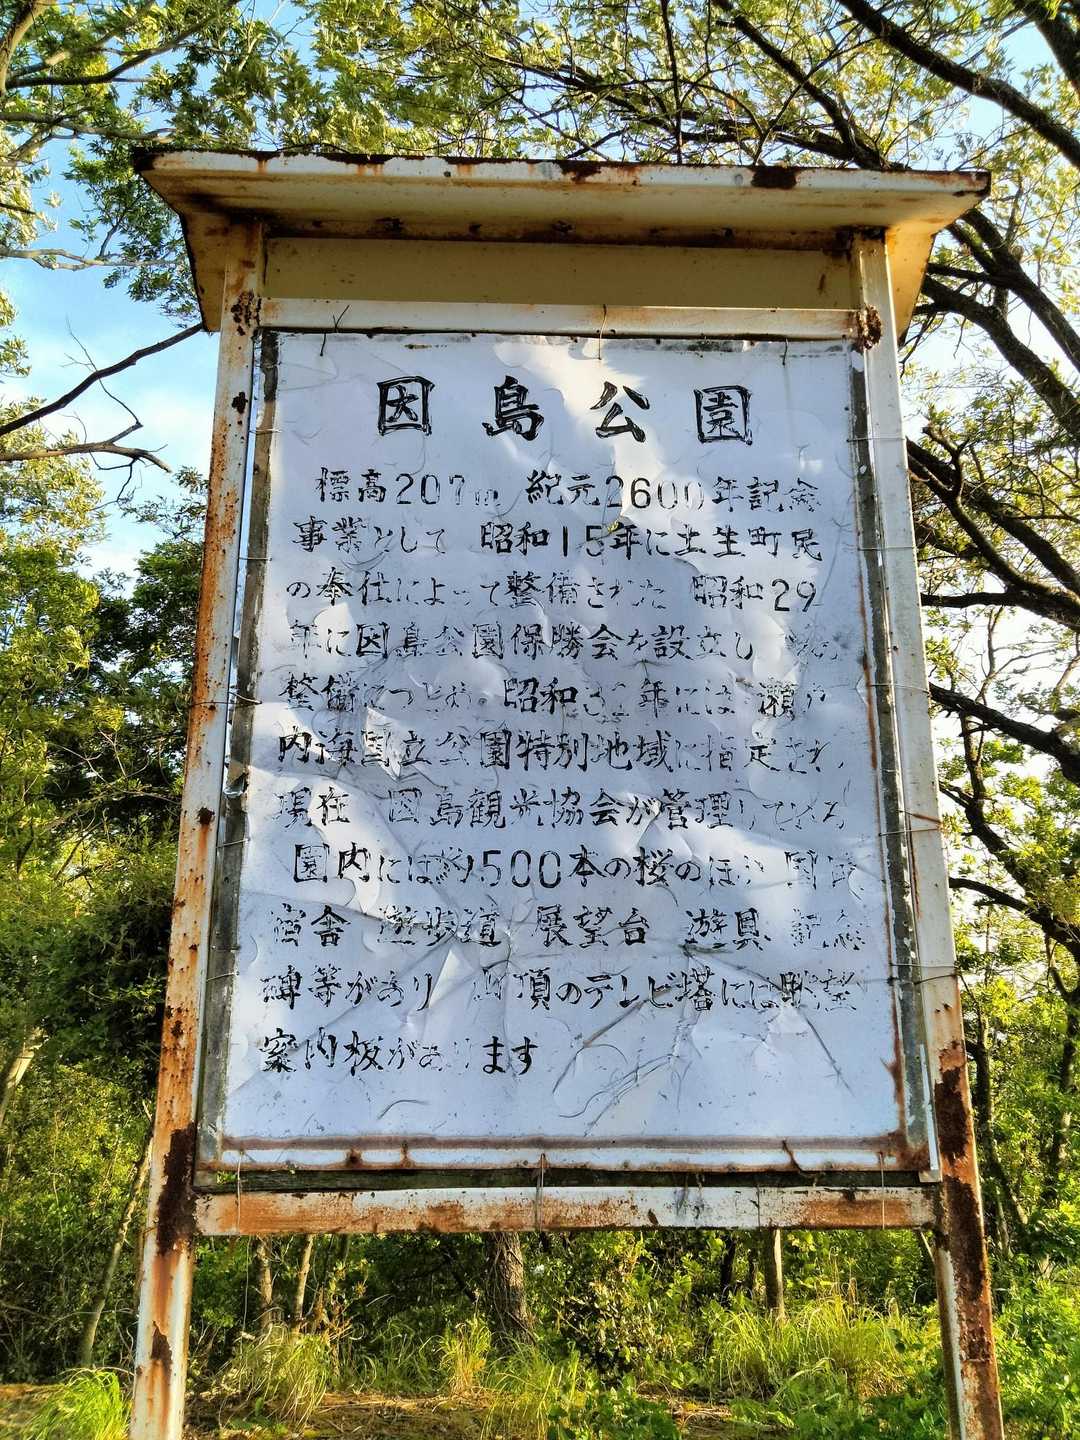 因島公園
標高207m 紀元2600年記念
事業として 昭和15年に土生町民
の奉仕によって整備された 昭和29
年に因島公園保勝会を設立し
整備につとめ 昭和 年には 瀬戸
内海国立公園特別地域に指定され
現在 因島観光協会が管理している
園内には約500本の桜のほか 国民
宿舎 遊歩道 展望台 遊具 記念
碑等があり 山頂のテレビ塔には眺望
案内板があります